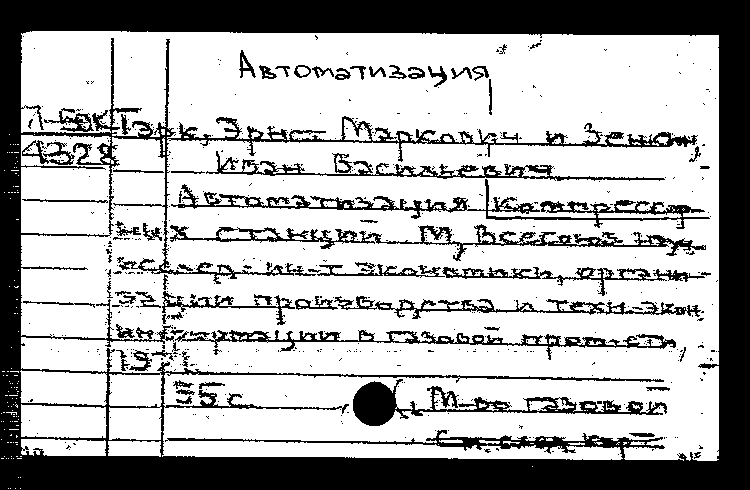 Автоматизация
7-50к Тарк, Эрнст Маркович и Зенкин,
4328 Иван Васильевич
Автоматизация компрессор-
ных станций. М, Всесоюз науч-
исслед. ин-т экономики, органи-
зации производства и техн-экон.
информации в газовой пром-сти,
197
35 с. М-во газовой
См. след карт